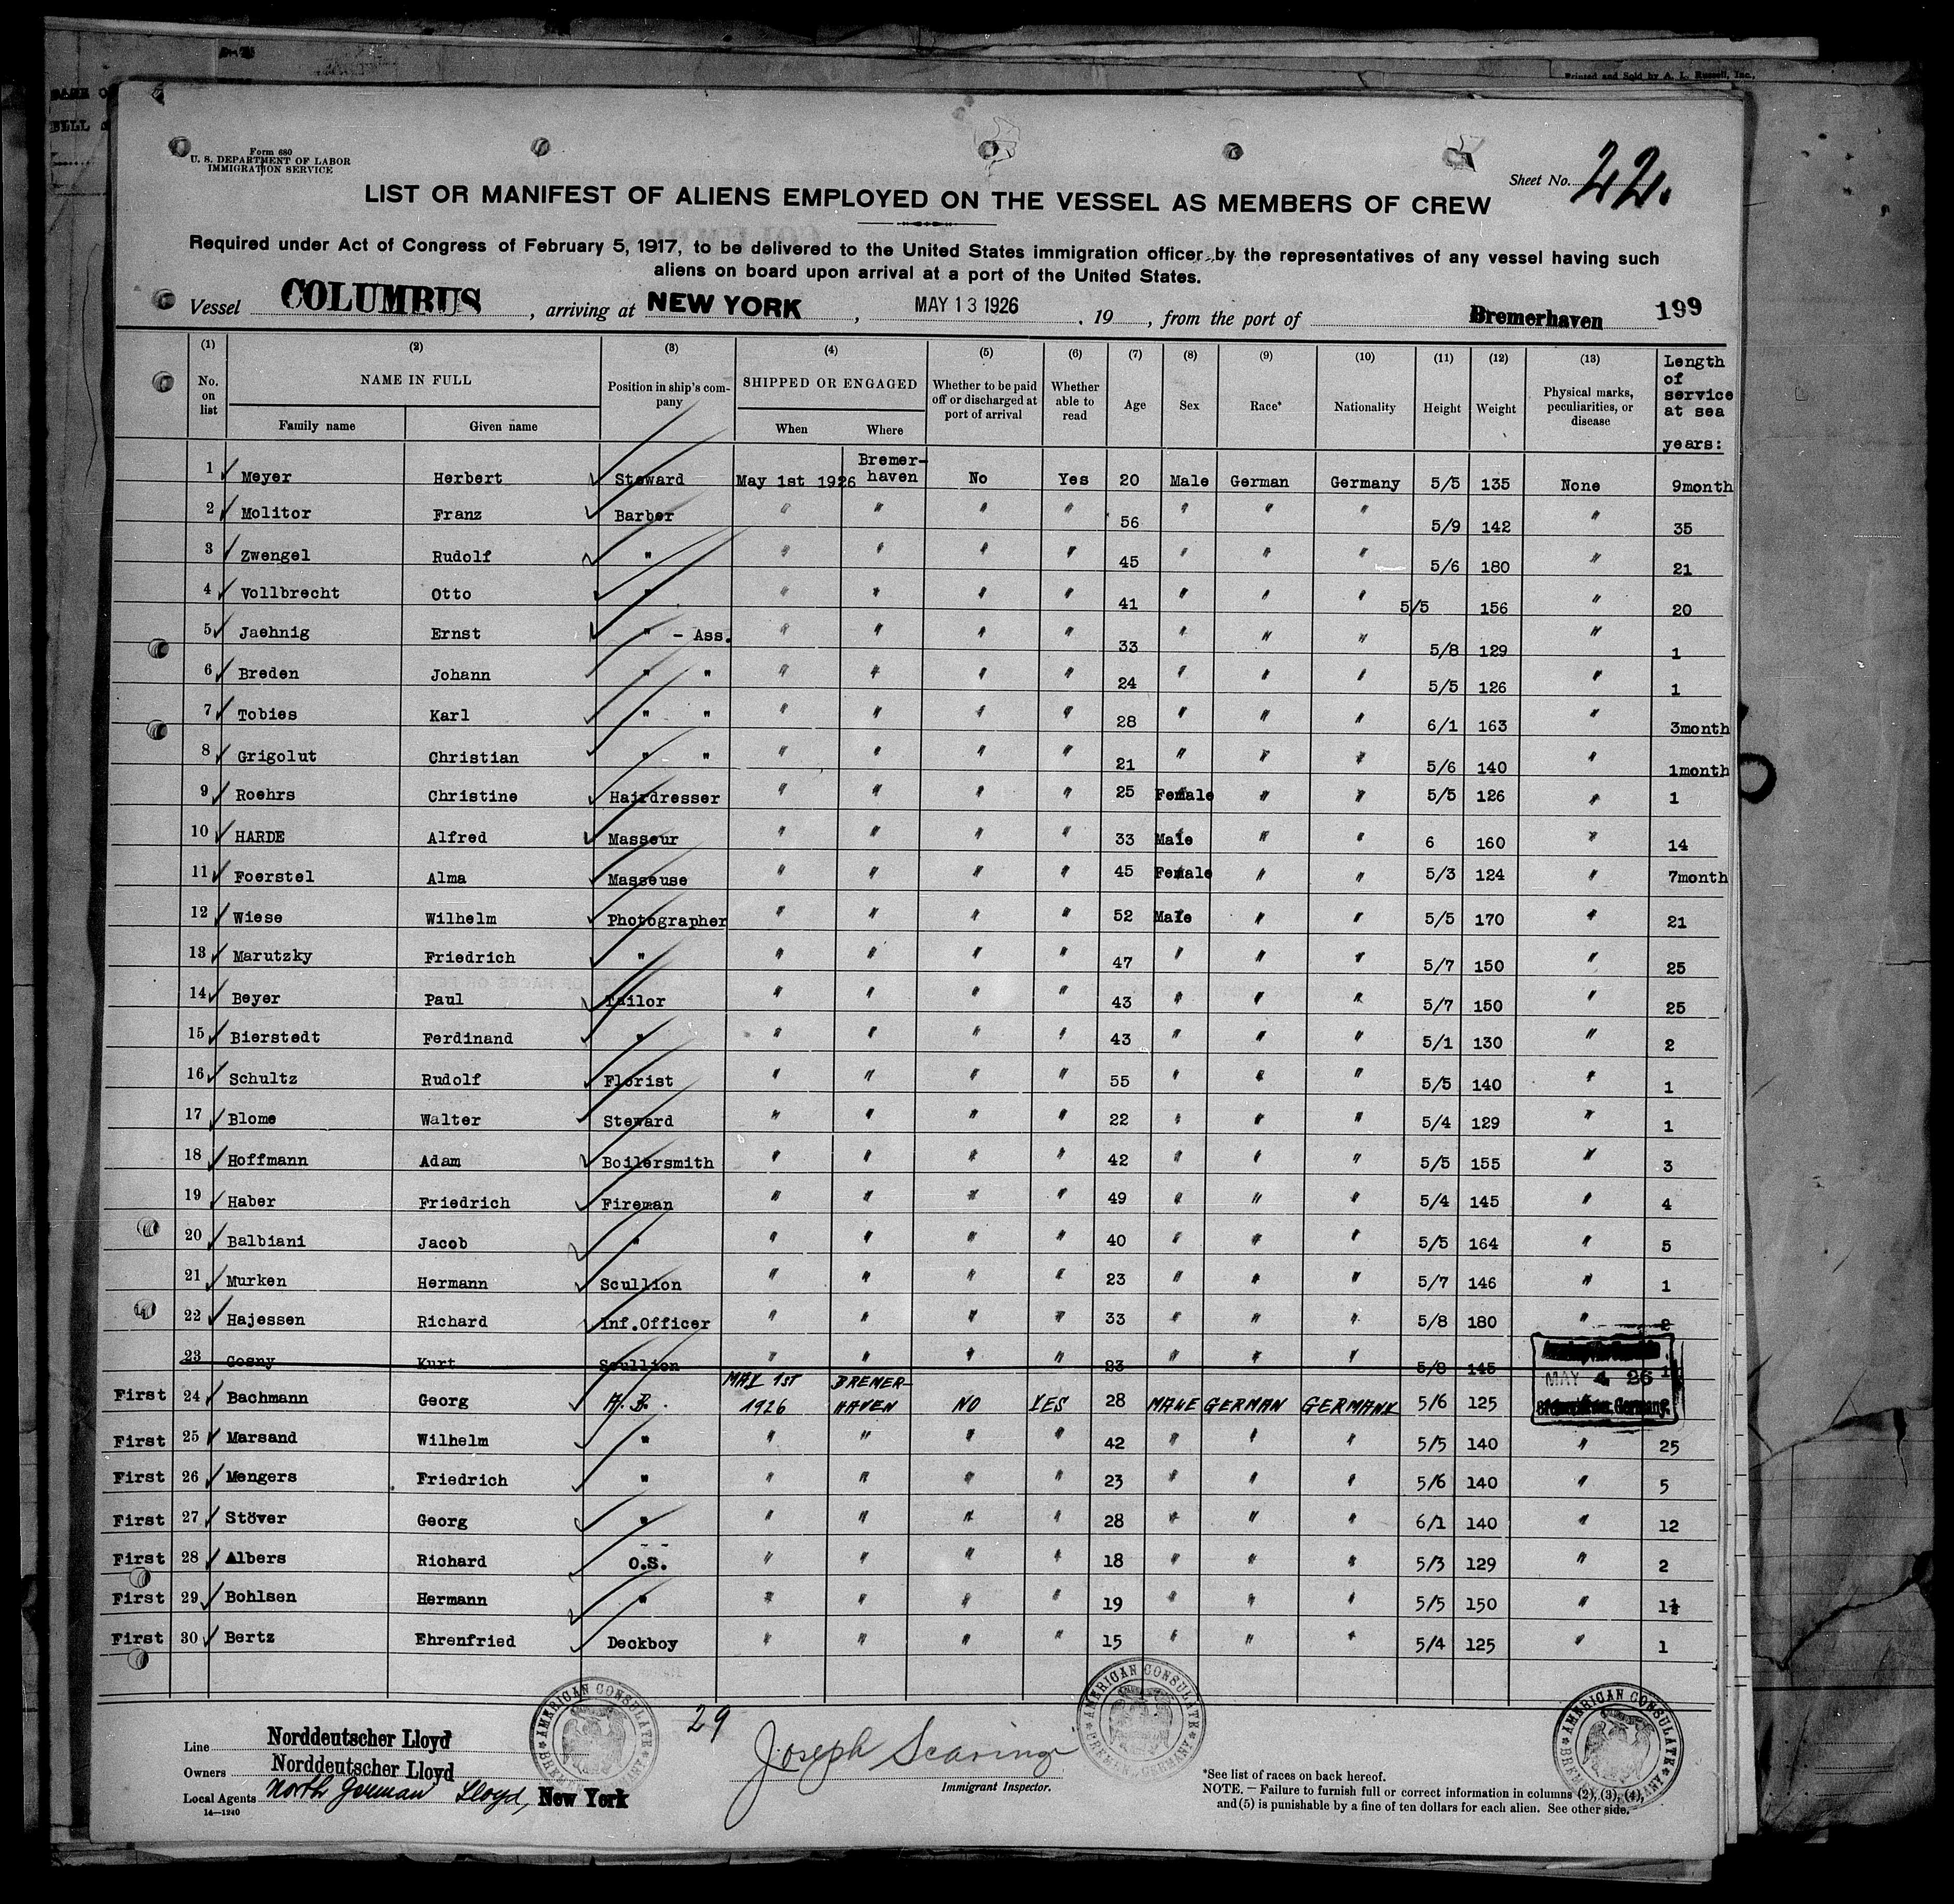 Printed and Sold by A. L. Russell, Inc.,
Form 680
U. S. DEPARTMENT OF LABOR
IMMIGRATION SERVICE
Sheet No. 22.
LIST OR MANIFEST OF ALIENS EMPLOYED ON THE VESSEL AS MEMBERS OF CREW
Required under Act of Congress of February 5, 1917, to be delivered to the United States immigration officer by the representatives of any vessel having such
aliens on board upon arrival at a port of the United States.
Vessel COLUMBUS, arriving at NEW YORK, MAY 13 1926, 19, from the port of Bremerhaven 199
(1) (2) (3) (4) (5) (6) (7) (8) (9) (10) (11) (12) (13)
No. on list NAME IN FULL Family name Given name Position in ship's company SHIPPED OR ENGAGED When Where Whether to be paid off or discharged at port of arrival Whether able to read Age Sex Race* Nationality Height Weight Physical marks, peculiarities, or disease Length of service at sea years:
1 Meyer Herbert Steward May 1st 1926 Bremerhaven No Yes 20 Male German Germany 5/5 135 None 9month
2 Molitor Franz Barber " " " " 56 " " " 5/9 142 " 35
3 Zwengel Rudolf " " " " " 45 " " " 5/6 180 " 21
4 Vollbrecht Otto " " " " " 41 " " " 5/5 156 " 20
5 Jaehnig Ernst " - Ass. " " " " 33 " " " 5/8 129 " 1
6 Breden Johann " " " " " " 24 " " " 5/5 126 " 1
7 Tobies Karl " " " " " " 28 " " " 6/1 163 " 3month
8 Grigolut Christian " " " " " " 21 " " " 5/6 140 " 1month
9 Roehrs Christine Hairdresser " " " " 25 Female " " 5/5 126 " 1
10 HARDE Alfred Masseur " " " " 33 Male " " 6 160 " 14
11 Foerstel Alma Masseuse " " " " 45 Female " " 5/3 124 " 7month
12 Wiese Wilhelm Photographer " " " " 52 Male " " 5/5 170 " 21
13 Marutzky Friedrich " " " " " 47 " " " 5/7 150 " 25
14 Beyer Paul Tailor " " " " 43 " " " 5/7 150 " 25
15 Bierstedt Ferdinand " " " " " 43 " " " 5/1 130 " 2
16 Schultz Rudolf Florist " " " " 55 " " " 5/5 140 " 1
17 Blome Walter Steward " " " " 22 " " " 5/4 129 " 1
18 Hoffmann Adam Boilersmith " " " " 42 " " " 5/5 155 " 3
19 Haber Friedrich Fireman " " " " 49 " " " 5/4 145 " 4
20 Balbiani Jacob " " " " " 40 " " " 5/5 164 " 5
21 Murken Hermann Scullion " " " " 23 " " " 5/7 146 " 1
22 Hajessen Richard Inf.Officer " " " " 33 " " " 5/8 180 " 2
23 Cosny Kurt Scullion " " " " 23 " " " 5/8 145 1
First 24 Bachmann Georg A.B. MAY 1ST 1926 BREMERHAVEN NO YES 28 MALE GERMAN GERMANY 5/6 125 MAY 4 26 Germany
First 25 Marsand Wilhelm " " " " " 42 " " " 5/5 140 " 25
First 26 Mengers Friedrich " " " " " 23 " " " 5/6 140 " 5
First 27 Stöver Georg " " " " " 28 " " " 6/1 140 " 12
First 28 Albers Richard O.S. " " " " 18 " " " 5/3 129 " 2
First 29 Bohlsen Hermann " " " " " 19 " " " 5/5 150 " 1½
First 30 Bertz Ehrenfried Deckboy " " " " 15 " " " 5/4 125 " 1
29
Line Norddeutscher Lloyd
Owners Norddeutscher Lloyd
Local Agents North German Lloyd, New York
14—1240
AMERICAN CONSULATE BREMEN, GERMANY
Joseph Scaringi
Immigrant Inspector.
AMERICAN CONSULATE BREMEN, GERMANY
AMERICAN CONSULATE BREMEN, GERMANY
*See list of races on back hereof.
NOTE. — Failure to furnish full or correct information in columns (2), (3), (4),
and (5) is punishable by a fine of ten dollars for each alien. See other side.